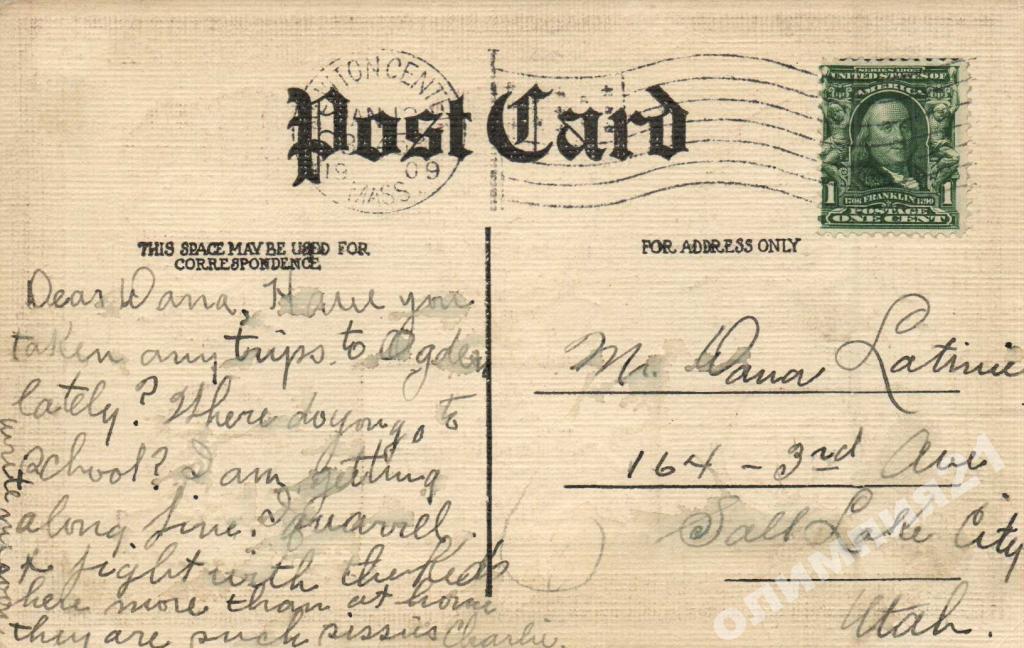 NEWTON CENTER
JAN 12
19 09
MASS.
Post Card
SERIES 1902
UNITED STATES OF
AMERICA
1 1
1706 FRANKLIN 1790
POSTAGE
ONE CENT
THIS SPACE MAY BE USED FOR
CORRESPONDENCE
FOR ADDRESS ONLY
Dear Dana, Have you
taken any trips to Ogden
lately? Where do you go to
School? I am getting
along fine. I quarrel
& fight with the kids
here more than at home
they are such sissies Charlie.
write me soon
Mr. Dana Latimer
164 - 3rd Ave
Salt Lake City
Utah.
олимпия21